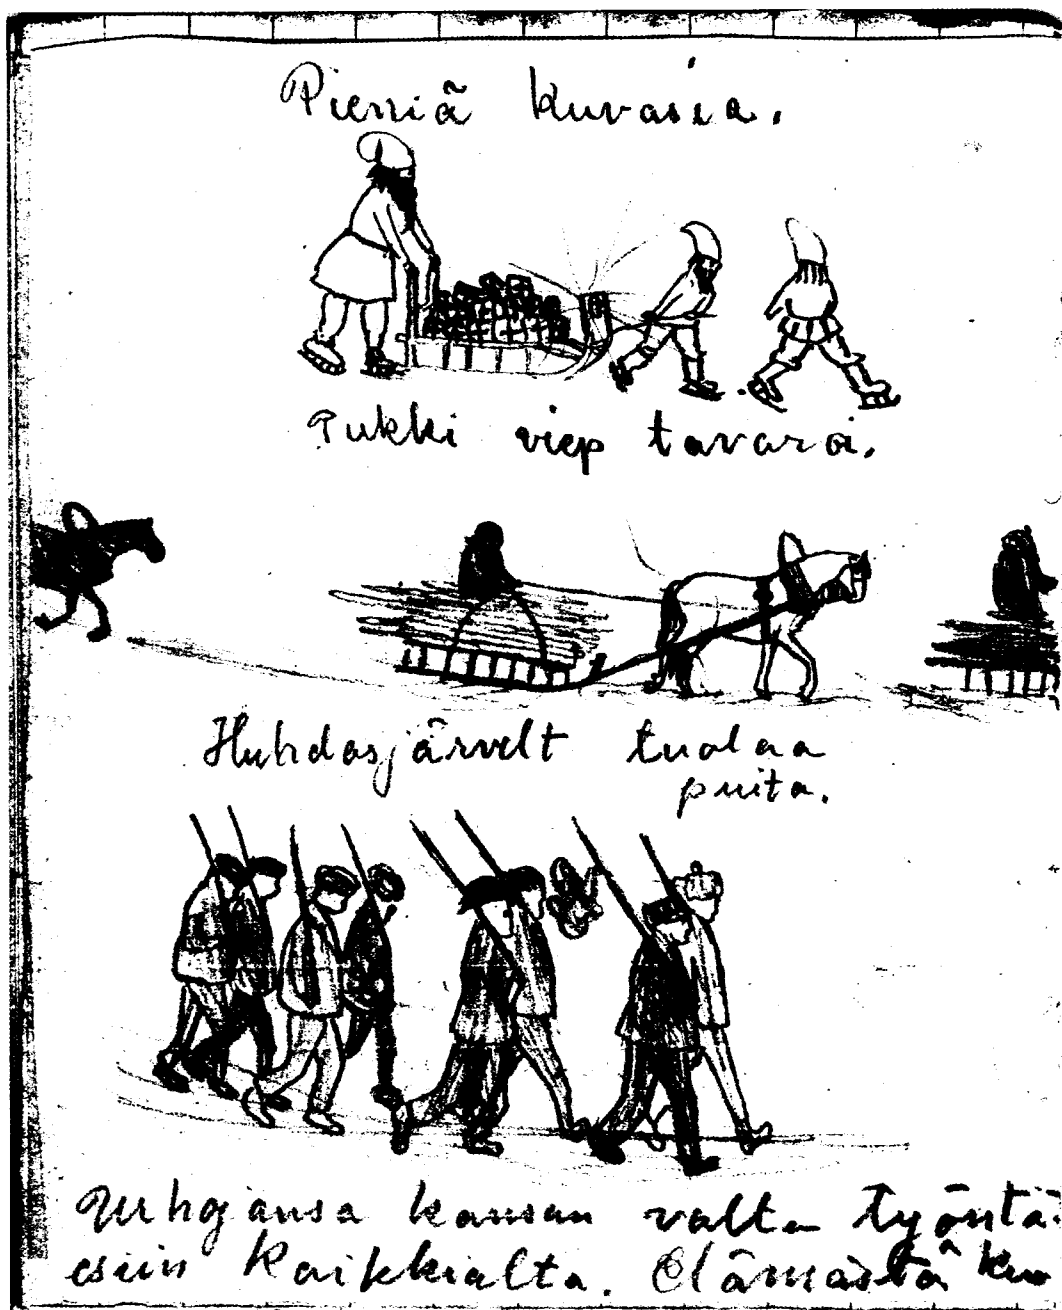 Pieniä kuvasia.
Pukki viep tavaroi.
Huhdasjärvelt tuolaa
puita.
Urhojansa kansan valta työntä
esiin kaikkialta. Elämästä kuo